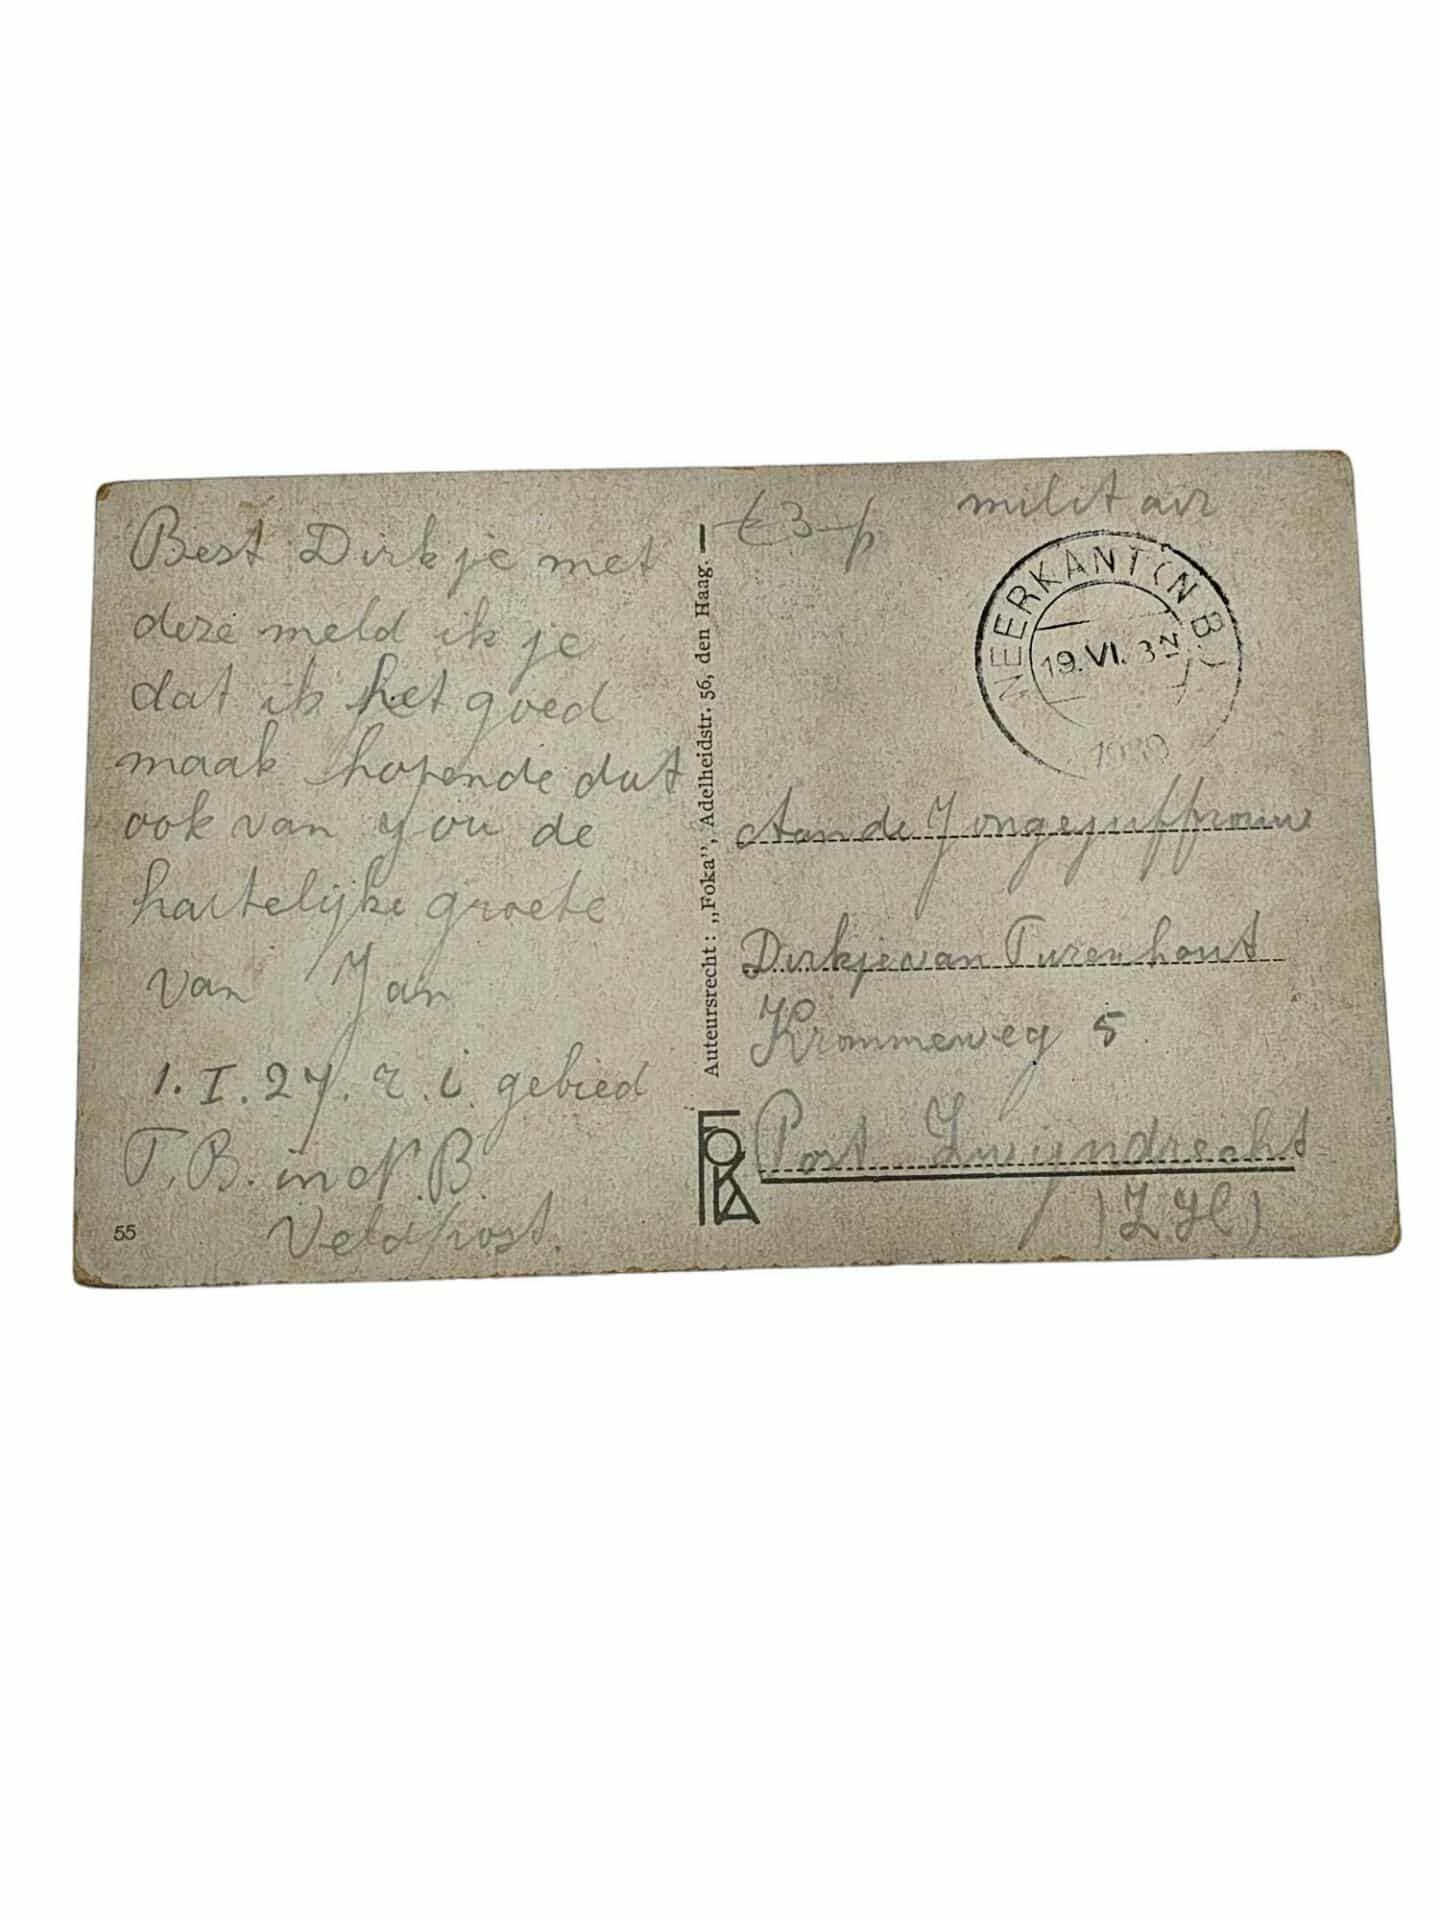 Best Dirkje met
deze meld ik je
dat ik het goed
maak hopende dat
ook van you de
hartelijke groete
van Jan
1. I. 27. R. i. gebied
T. B. in N. B.
Veldpost.
55
Auteursrecht: „Foka”, Adelheidstr. 56, den Haag.
FOKA
£3-p
militair
NEERKANT (N.B.)
19.VI.3
Aan de Jongejuffrouw
Dirkje van Turenhout
Krommeweg 5
Post Zwijndrecht
(Z.H.)